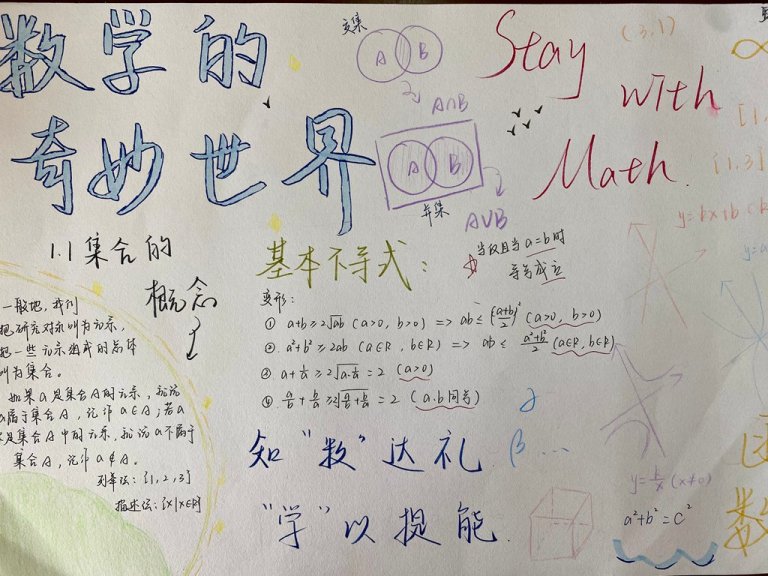 数学的
奇妙世界
交集
A B
A∩B
A B
并集
A∪B
Stay
with
Math.
(3,1)
[1,3]
y=kx+b
1.1集合的
概念
一般地,我们
把研究对象叫为元素,
把一些元素组成的总体
叫为集合。
如果a是集合A的元素,就说
a属于集合A,记作a∈A;若a
不是集合A中的元素,就说a不属于
集合A,记作a∉A。
列举法:{1,2,3}
描述法:{x|x∈R}
基本不等式:
当仅且当a=b时
等号成立
变形:
① a+b≥2√ab (a>0, b>0) => ab≤(a+b/2)² (a>0, b>0)
②. a²+b²≥2ab (a∈R, b∈R) => ab≤ a²+b²/2 (a∈R, b∈R)
③. a+1/a≥2√a·1/a=2 (a>0)
④. a/b+b/a≥2√a/b+b/a=2 (a.b同号)
知“数”达礼
“学”以提能.
α
β...
y=k/x (x≠0)
a²+b²=C²
函
数